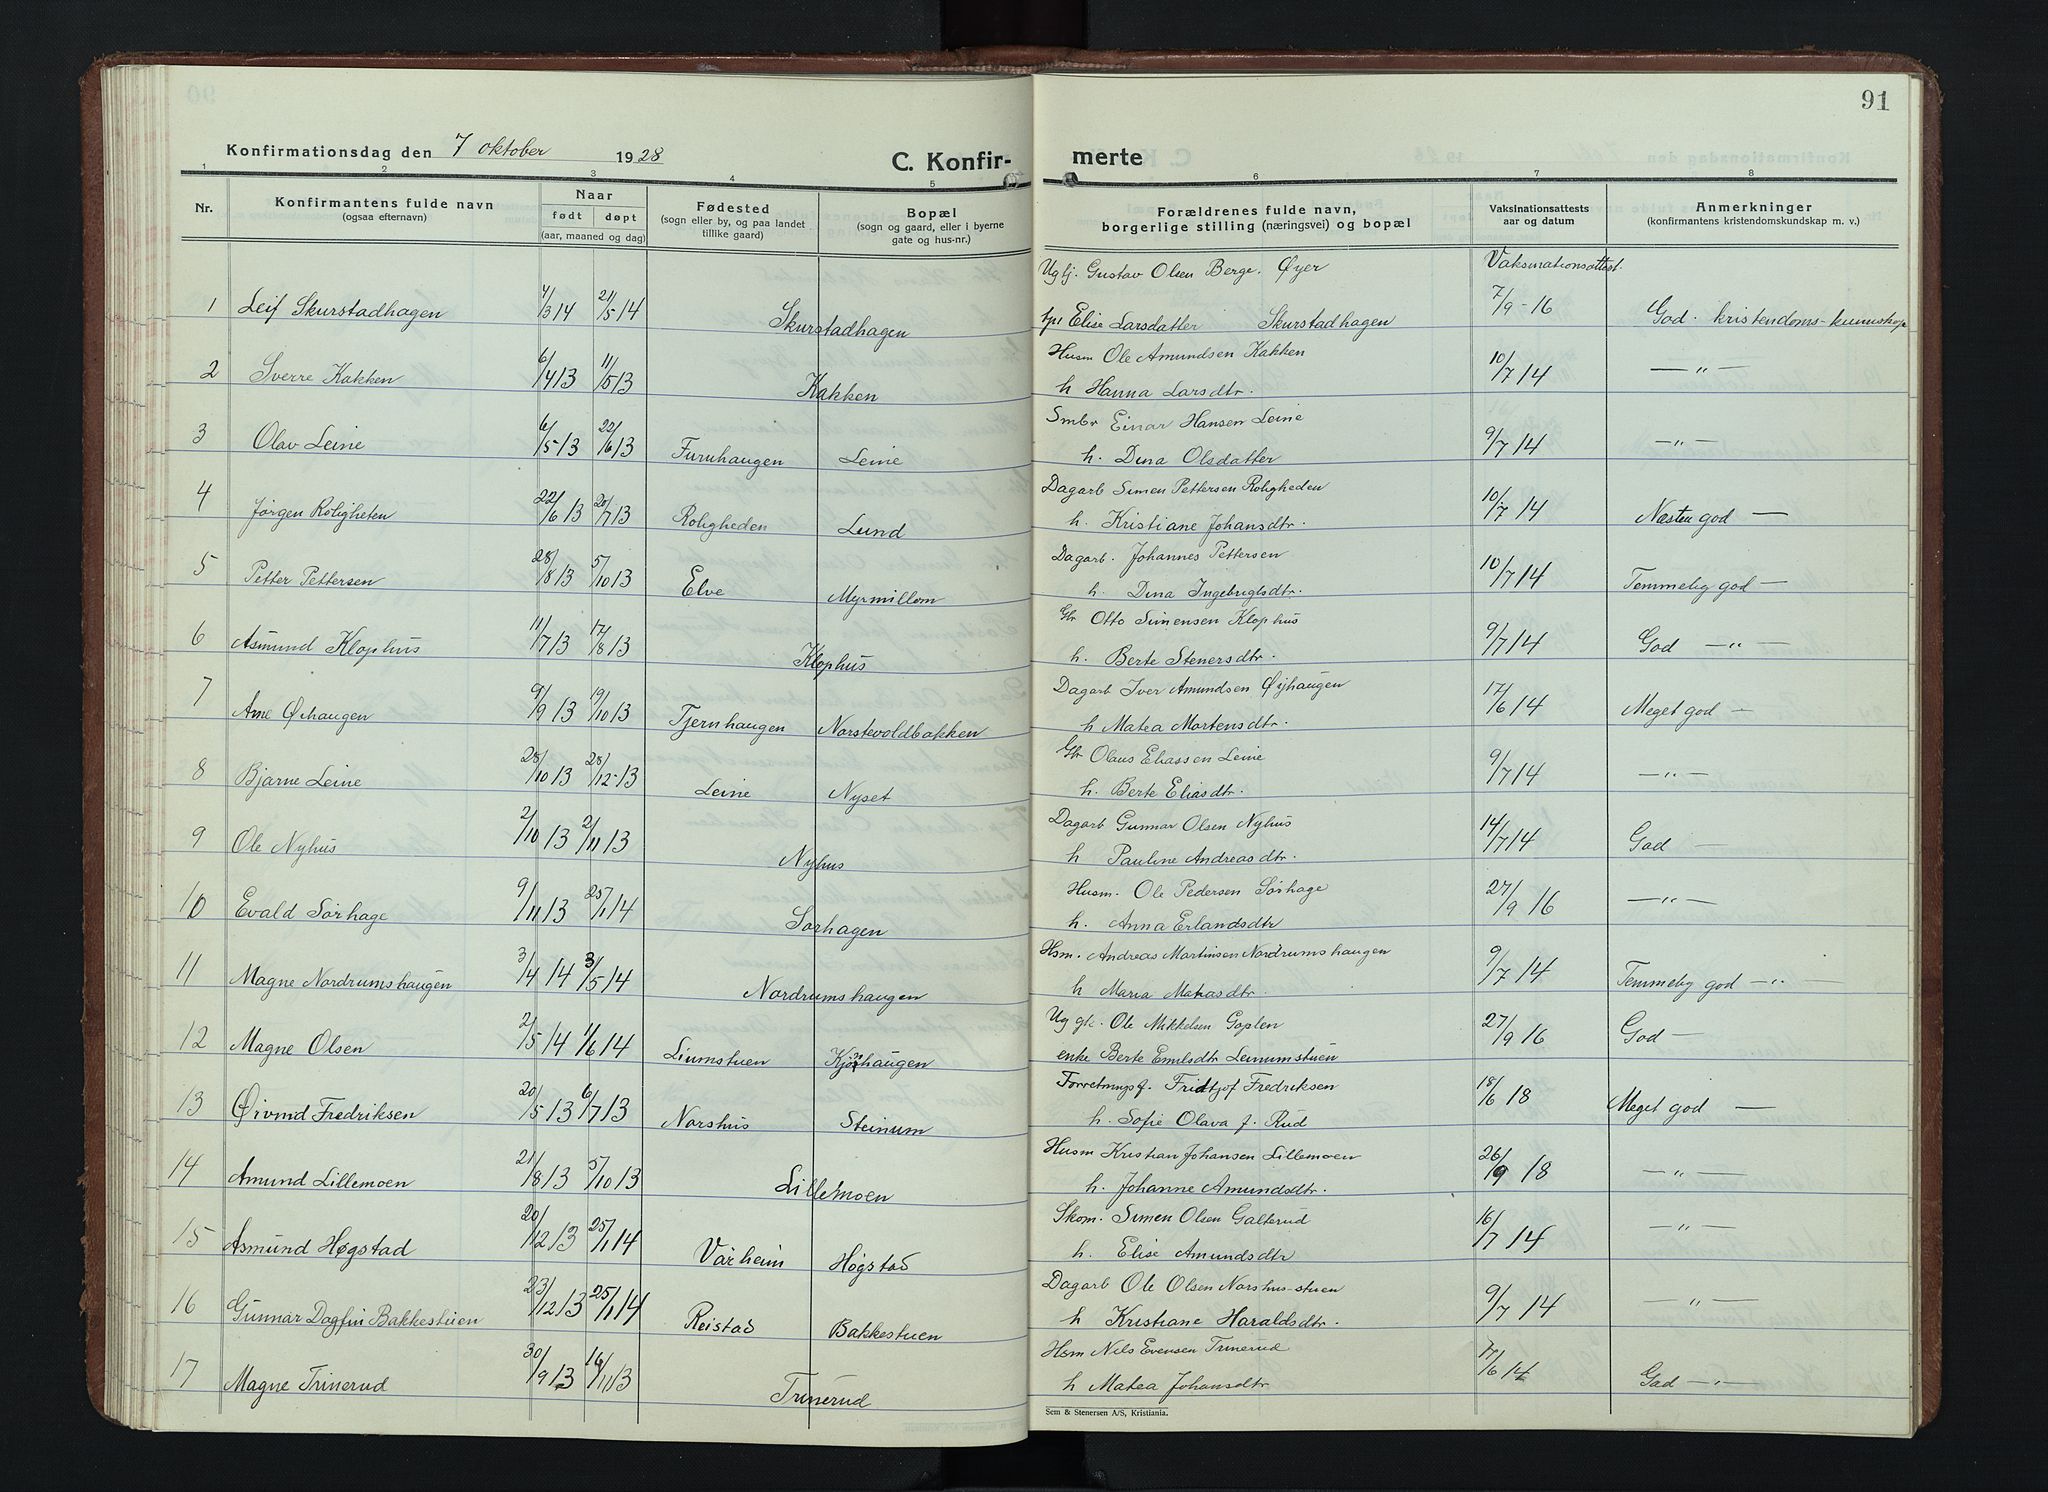 91
Konfirmationsdag den 7 oktober 1928
C. Konfir-
merte
1 2 3 4 5 6 7 8
Nr.
Konfirmantens fulde navn
(ogsaa efternavn)
Naar
født døpt
(aar, maaned og dag)
Fødested
(sogn eller by, og paa landet
tillike gaard)
Bopæl
(sogn og gaard, eller i byerne
gate og hus-nr.)
Forældrenes fulde navn,
borgerlige stilling (næringsvei) og bopæl
Vaksinationsattests
aar og datum
Anmerkninger
(konfirmantens kristendomskundskap m. v.)
Ug tj. Gustav Olsen Berge. Øyer Vaksinationsattest.
1 Leif Skurstadhagen 4/3 14 21/5 14 Skurstadhagen Elise Larsdatter Skurstadhagen 7/9-16 God kristendoms-kunnskap
Husm Ole Amundsen Kakken
2 Sverre Kakken 6/4 13 11/5 13 Kakken h Hanna Larsdtr. 10/7 14 — „ —
Smbr Einar Hansen Leine
3 Olav Leine 6/5 13 22/6 13 Furuhaugen Leine h. Dina Olsdatter 9/7 14 — „ —
Dagarb Simen Pettersen Roligheden
4 Jørgen Roligheten 22/6 13 20/7 13 Roligheden Lund h. Kristiane Johansdtr. 10/7 14 Næsten god —
Dagarb. Johannes Pettersen
5 Petter Pettersen 28/8 13 5/10 13 Elve Myrmillom h. Dina Ingebrigtsdtr. 10/7 14 Temmelig god —
Gbr Otto Simensen Klophus
6 Asmund Klophus 11/7 13 17/8 13 Klophus h. Berte Stenersdtr. 9/7 14 God — „ —
Dagarb Iver Amundsen Øihaugen
7 Arne Øihaugen 9/9 13 19/10 13 Tjernhaugen Norstevoldbakken h Matea Mortensdtr. 17/6 14 Meget god —
Gbr Olaus Eliassen Leine
8 Bjarne Leine 28/10 13 28/12-13 Leine Nyset h. Berte Eliasdtr. 9/7 14 — „ —
Dagarb Gunnar Olsen Nyhus
9 Ole Nyhus 2/10 13 2/11 13 Nyhus h Pauline Andreasdtr. 14/7 14 God —
Husm. Ole Pedersen Sørhage
10 Evald Sørhage 9/11 13 25/1 14 Sørhagen h. Anna Erlandsdtr 27/9 16 — „ —
Hsm. Andreas Martinsen Nordrumshaugen
11 Magne Nordrumshaugen 3/4 14 3/5 14 Nordrumshaugen h Maria Matiasdtr. 9/7 14 Temmelig god — „ —
Ug gk. Ole Mikkelsen Goplen
12 Magne Olsen 2/5 14 1/6 14 Liumstuen enke Berte Emilsdtr 27/9 16 God —
Forretningsf. Fridtjof Fredriksen
13 Øivind Fredriksen 20/5 13 6/7 13 Norshus Steinum h. Sofie Olava f. Rud 18/6 18 Meget god —
Husm Kristian Johansen Lillemoen
14 Amund Lillemoen 21/8 13 5/10 13 Lillemoen h. Johanne Amundsdtr. 26/9 18 — „ —
Skom. Simen Olsen Galterud
15 Asmund Høgstad 20/12 13 25/1 14 Vårheim Høgstad h. Elise Amundsdtr 16/7 14 — „ —
Dagarb Ole Olsen Norshus-stuen
16 Gunnar Dagfin Bakkestuen 23/12 13 25/1 14 Reistad Bakkestuen h Kristiane Haraldsdtr. 9/7 14 — „ —
Hsm Nils Evensen Trinerud
17 Magne Trinerud 30/9 13 16/11 13 Trinerud h Matea Johansdtr 17/6 14 God — „ —
Sem & Stenersen A/S, Kristiania.